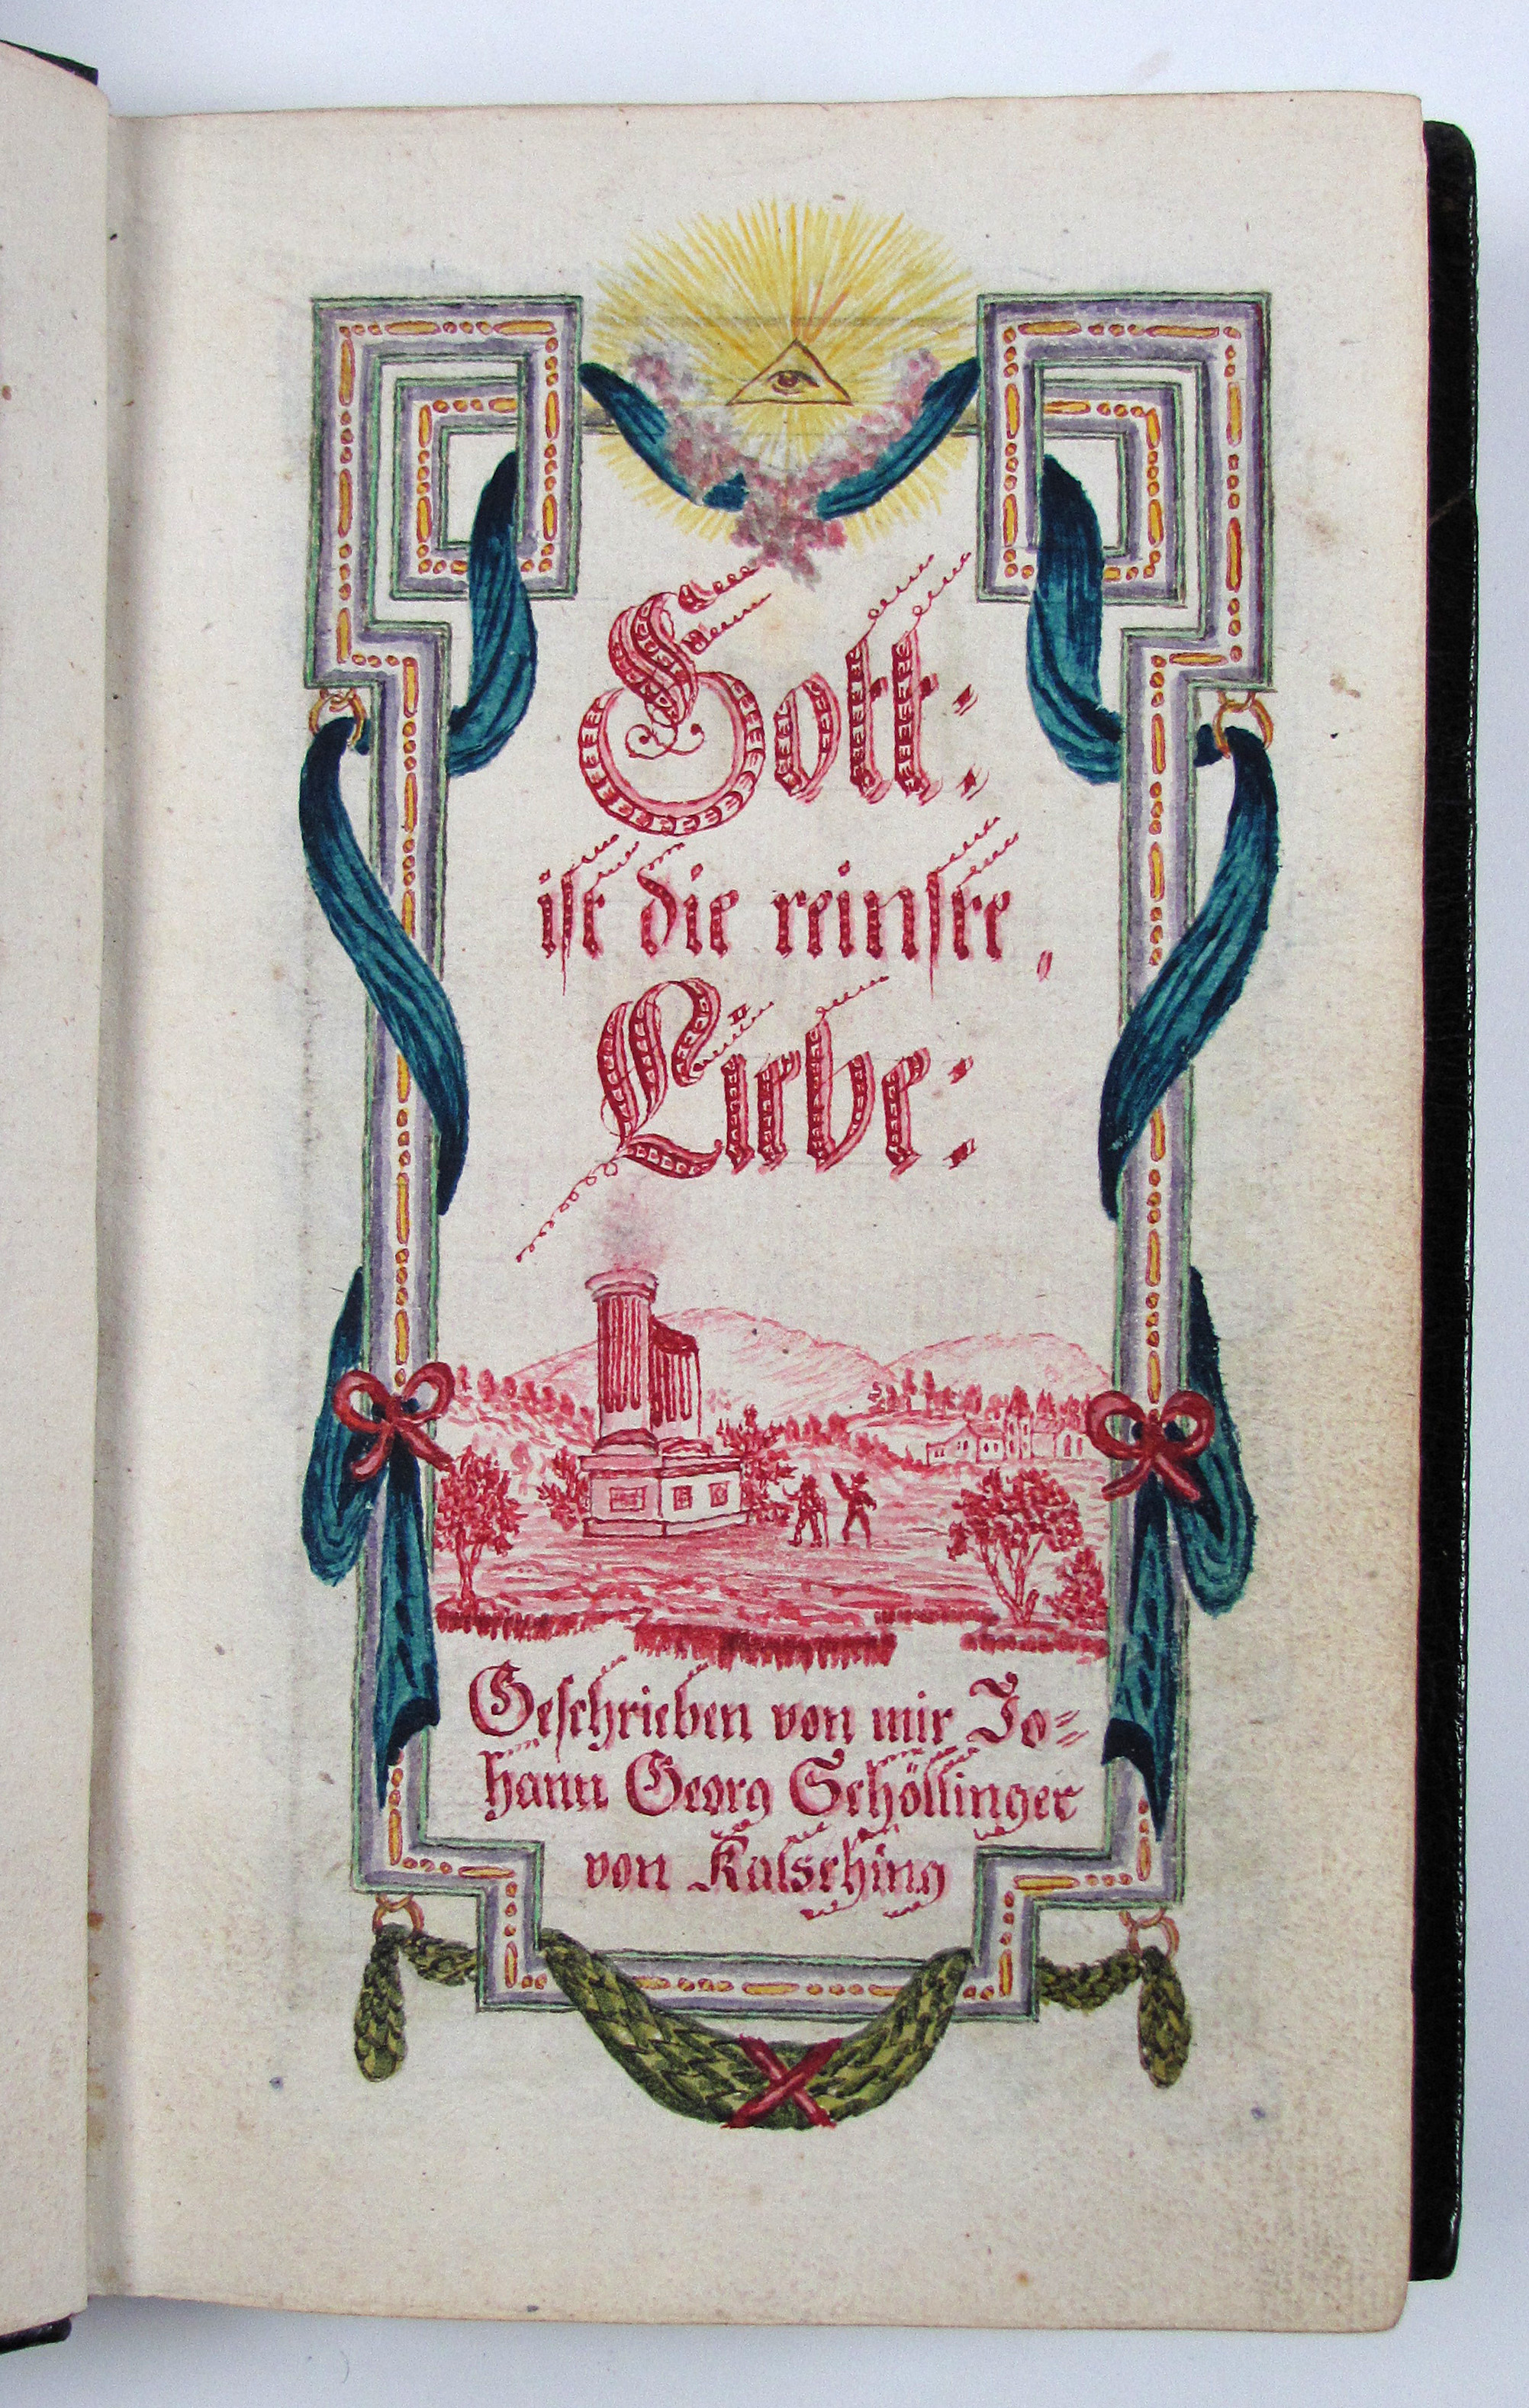 Gott:
ist die reinste,
Liebe:
Geschrieben von mir Jo=
hann Georg Schöllinger
von Kalsching